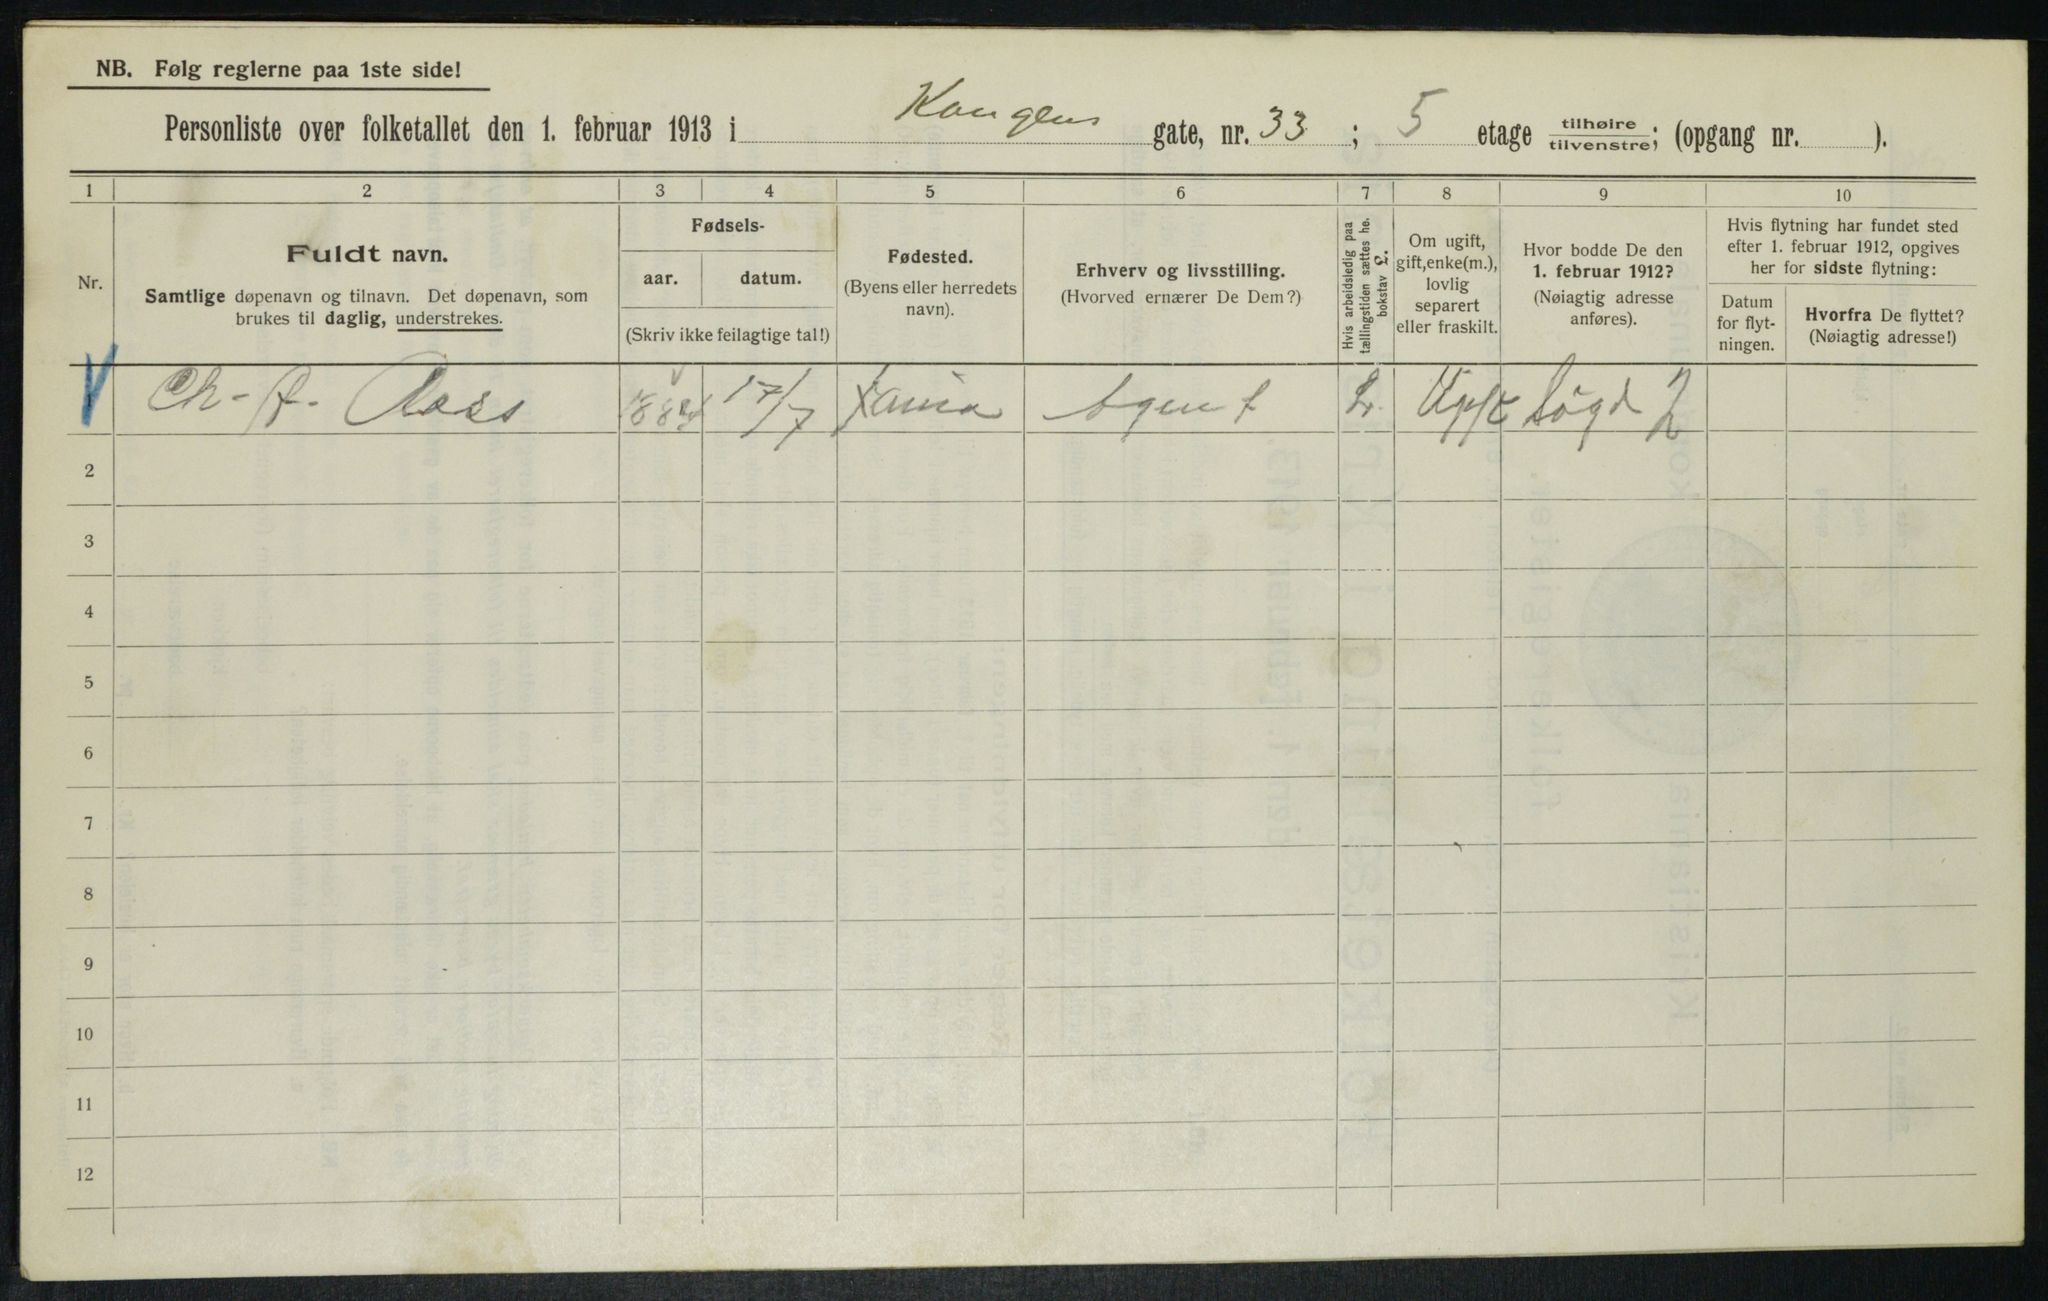 NB. Følg reglerne paa 1ste side!
Personliste over folketallet den 1. februar 1913 i Kongens gate, nr. 33 ; 5 etage tilhøire tilvenstre; (opgang nr. ).
1 2 3 4 5 6 7 8 9 10
Nr.
Fuldt navn.
Samtlige døpenavn og tilnavn. Det døpenavn, som
brukes til daglig, understrekes.
Fødsels-
aar. datum.
(Skriv ikke feilagtige tal!)
Fødested.
(Byens eller herredets
navn).
Erhverv og livsstilling.
(Hvorved ernærer De Dem?)
Hvis arbeidsledig paa
tællingstiden sættes he.
bokstav L.
Om ugift,
gift, enke(m.),
lovlig
separert
eller fraskilt.
Hvor bodde De den
1. februar 1912?
(Nøiagtig adresse
anføres).
Hvis flytning har fundet sted
efter 1. februar 1912, opgives
her for sidste flytning:
Datum
for flyt-
ningen.
Hvorfra De flyttet?
(Nøiagtig adresse!)
1 Ch. A. Aass 17/7 Xania Agent L. Ugift
2
3
4
5
6
7
8
9
10
11
12